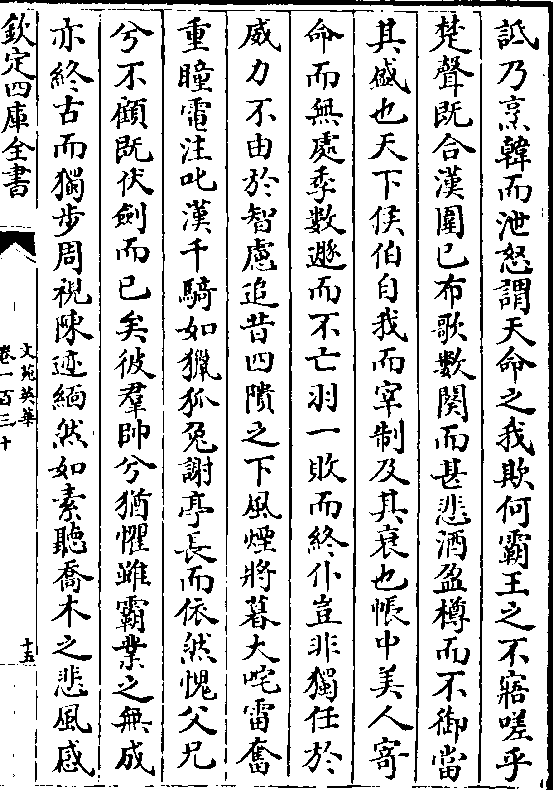 詆乃烹韓而泄怒謂天命之我欺何霸王之不寤嗟乎
楚聲既合漢圍已布歌數闋而甚悲酒盈樽而不御當
其盛也天下侯伯自我而宰制及其衰也帳中美人寄
命而無處季數遯而不亡羽一敗而終仆豈非獨任於
威力不由於智慮追昔四隤之下風煙將暮大咤雷奮
重瞳電注叱漢千騎如獵狐兔謝亭長而依然愧父兄
兮不顧既伏劍而已矣彼羣帥兮猶懼雖霸業之無成
亦終古而獨步周視陳迹緬然如素聽喬木之悲風感
欽定四庫全書
文苑英華
卷一百三十
十五